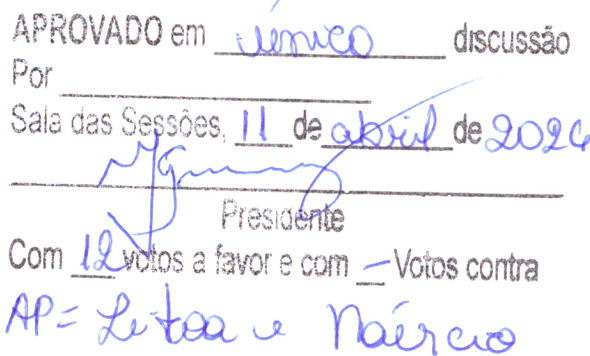 APROVADO em único discussão
Por
Sala das Sessões, 11 de abril de 2024
Presidente
Com 12 votos a favor e com – Votos contra
AP = e